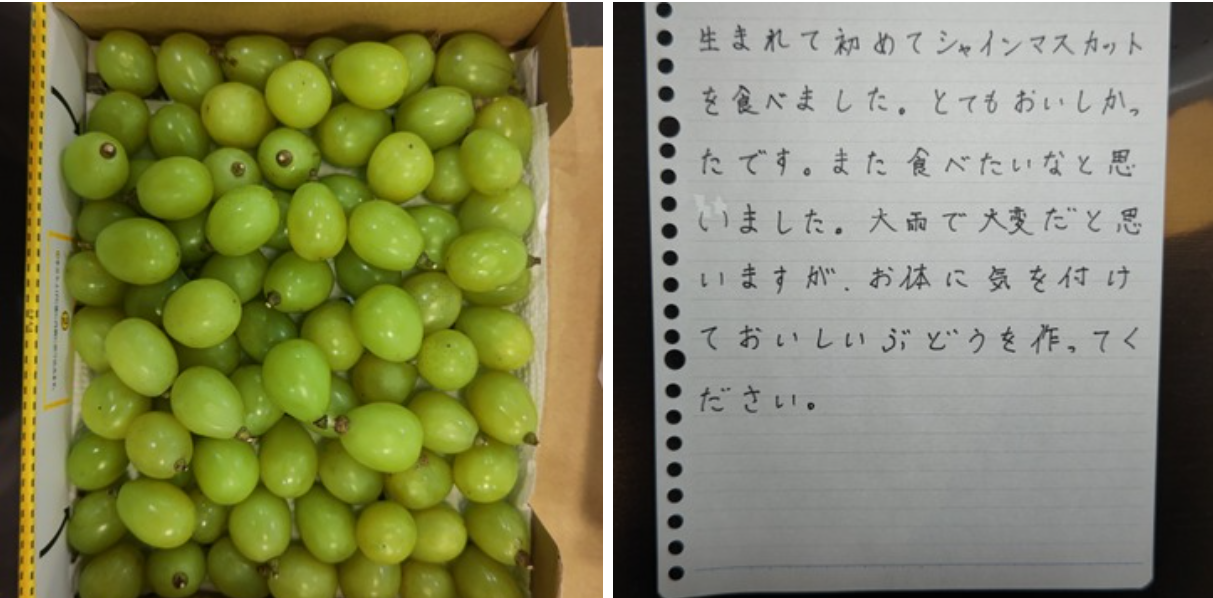 生まれて初めてシャインマスカット
を食べました。とてもおいしかっ
たです。また食べたいなと思
いました。大雨で大変だと思
いますが、お体に気を付け
ておいしいぶどうを作ってく
ださい。